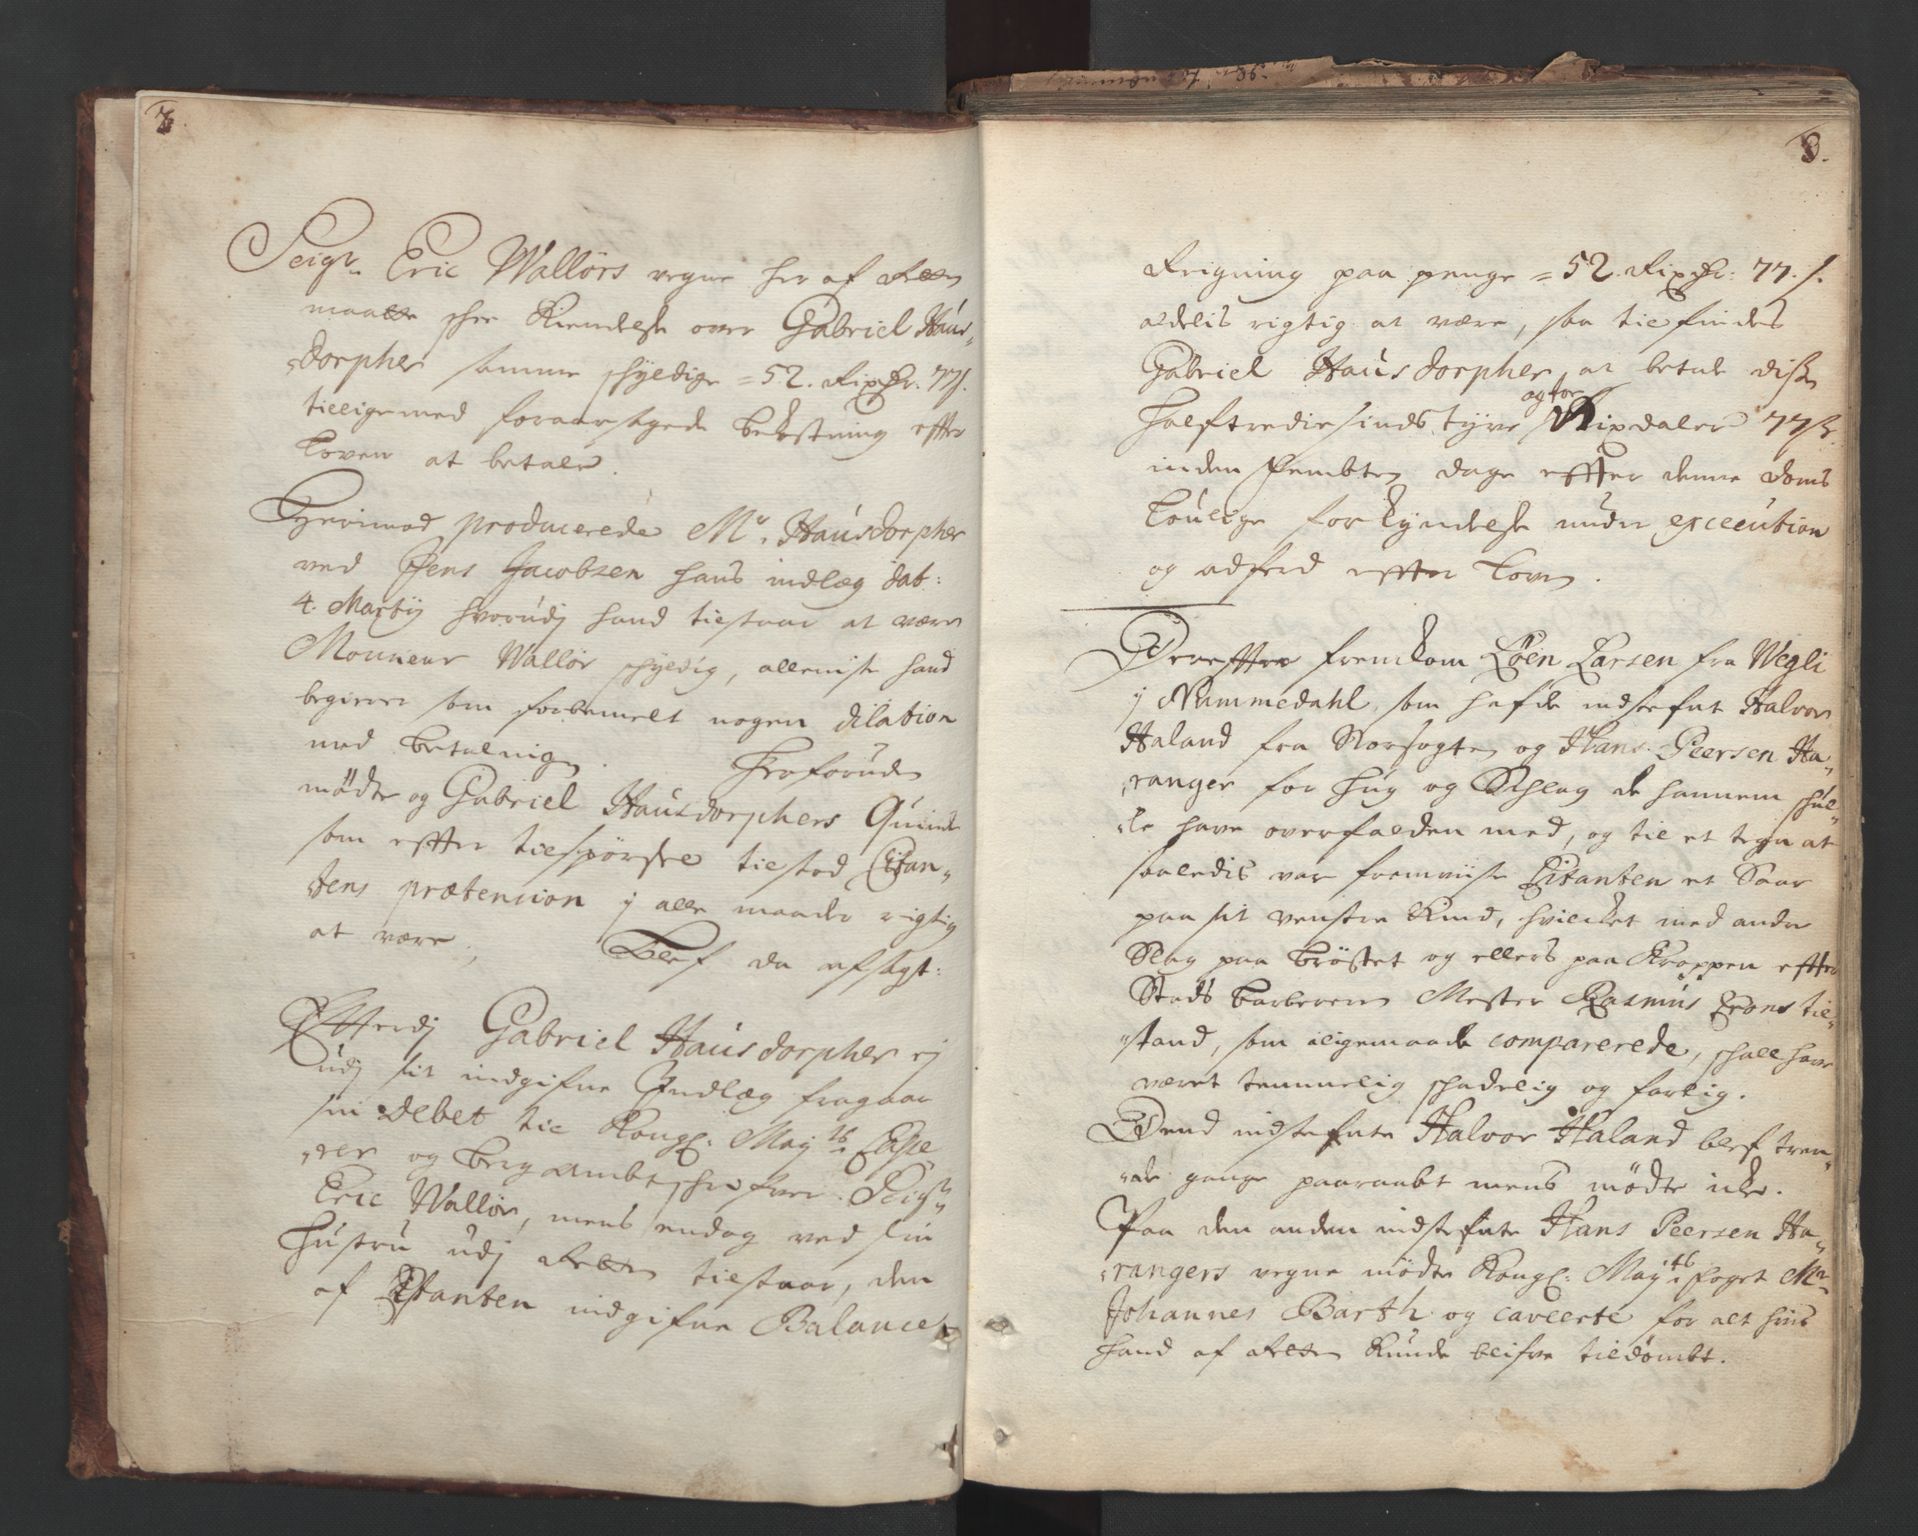 7.
Seigr. Eric Wallørs vegne her af Retten
maatte schee Kiendelse over Gabriel Haus-
dorpher samme schyldige = 52. Rixdr. 77 s.
tilligemed foraarsagede bekostning effter
Loven at betale.
Herimod producerede Mr. Hausdorpher
ved Jens Jacobsen hans indlæg dat:
4. Martij hvorudj hand tilstaar at være
Monsieur Wallør schyldig, alleniste hand
begierer som forbemelt nogen dilation
med betalning. Herforuden
mødte og Gabriel Hausdorphers Quinde
som effter tilspørsel tilstod Citan-
tens prætension j alle maader rigtig
at være, Blef da afsagt:
Efterdj Gabriel Hausdorpher ej
udj sit indgifne Indlæg fragaar
sin debet til Kongl: Mayts. Casse-
rer og bergambtschrifver Seigr.
Eric Wallør, mens endog ved sin
Hustru udj Retten tilstaar, den
af Citanten indgifne Balance
8.
Reigning paa penge = 52. Rixdr: 77. s.
aldelis rigtig at være, saa tilfindes
Gabriel Hausdorpher, at betale disse
halftrediesindstyve og toe Rixdaler 77 s.
inden fembten dage effter denne doms
Loulige forkyndelse under execution
og adferd effter Loven.
Dereffter fremkom Løen Larsen fra Wegli
j Nummedahl, som hafde indstefnt Halvor
Haland fra Norfogten og Hans Peersen Ha-
ranger for hug og Schlag de hannem schul-
le have overfalden med, og til et tegn at
saaledis var fremviste Citanten et Saar
paa sit venstre Kind, hvilcket med andre
Slag paa brøstet og ellers paa Kroppen effter
Stads barberens Mester Rasmus Crons til-
stand, som iligemaade comparerede, schall have
været temmelig schadelig og farlig.
Dend indstefnte Halvor Haland blef tren-
de gange paaraabt mens mødte icke.
Paa den anden indstefnte Hans Peersen Ha-
rangers vegne mødte Kongl: Mayts. foget Mr.
Johannes Barth og caveerte for alt hvis
hand af Retten kunde blifve tildømbt.